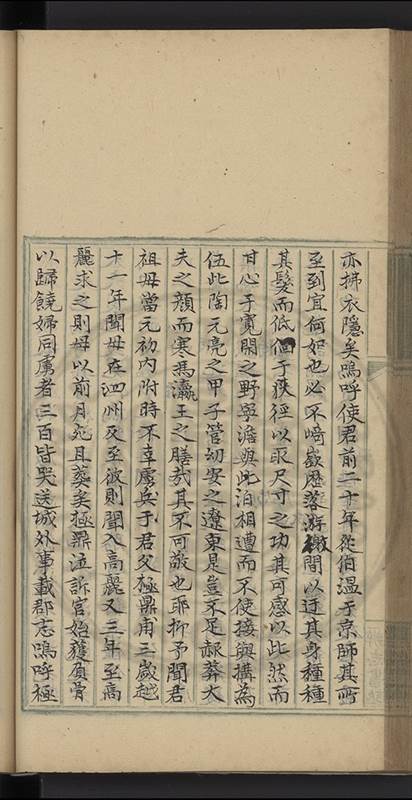 亦拂衣隱矣嗚呼使君前二十年從伯温于京師其所
至到宜何如也必不﨑嶔歷落游繳間以迂其身種種
其髮而低佪于狹徑以取尺寸之功其可感以此然而
甘心于寬閒之野與澹與此泊相遭而不使接與搆為
伍此陶元亮之甲子管幼安之遼東是豈不足赧莽大
夫之顔而寒馮瀛王之膳哉其不可敬也耶抑予聞君
祖母當元初内附時不幸虜兵于君父極鼎甫三歲越
十一年聞母在泗州及至彼則聞入高麗又三年至高
麗求之則母以前月死且葬矣極鼎泣訴官始獲負骨
以歸饒婦同虜者三百皆哭送城外事載郡志嗚呼極